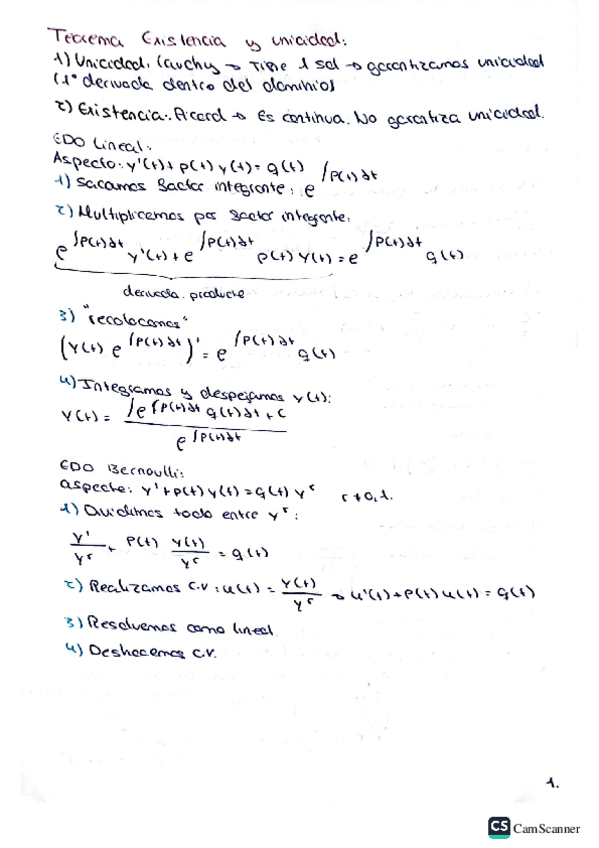 Teorema Existencia y unicidad:
1) Unicidad. Cauchy → Tiene 1 sol → garantizamos unicidad
(1ª derivada dentro del dominio)
2) Existencia: → Es continua. No garantiza unicidad.
EDO Lineal:
Aspecto: y'(t) + p(t) y(t) = g(t)
1) Sacamos factor integrante: e^∫P(t)dt
2) Multiplicamos por factor integrante:
e^∫P(t)dt y'(t) + e^∫P(t)dt p(t) y(t) = e^∫P(t)dt g(t)
derivada producto
3) "recolocamos"
(y(t) e^∫P(t)dt)' = e^∫P(t)dt g(t)
4) Integramos y despejamos y(t):
y(t) = ∫e^∫P(t)dt g(t)dt + C
e^∫P(t)dt
EDO Bernoulli:
aspecto: y' + p(t) y(t) = g(t) y^r r ≠ 0, 1.
1) Dividimos todo entre y^r:
y'/y^r + P(t) y(t)/y^r = g(t)
2) Realizamos C.V: u(t) = y(t)/y^r → u'(t) + P(t) u(t) = g(t)
3) Resolvemos como lineal
4) Deshacemos C.V.
1.
CS CamScanner